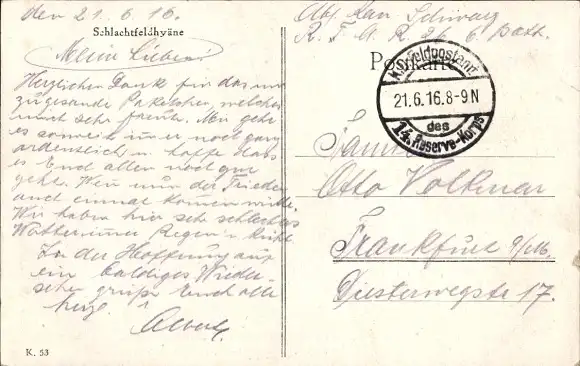 den 21.6.16.
Schlachtfeldhyäne
Meine Lieben!
Herzlichen Dank für das mir
zugesande Paketchen, welches
mich sehr freute. Mir geht
es soweit immer noch ganz
ordentlich u. hoffe dass
es Euch allen noch gut
geht. Wen nur der Frieden
auch einmal kommen würde.
Wir haben hier sehr schlechtes
Wetter immer Regen u. kühl
In der Hoffnung auf
ein baldiges Wieder-
sehn grüßt Euch alle
herzl.
Albert.
K. 53
Abs. Kan. Schwarz
R. F. A. R. 26 6. Batt.
Postkarte
K.D. Feldpostamt
21.6.16.8-9N
des
14. Reserve-Korps
Familie
Otto Volkmar
Frankfurt a/M.
Diesterwegstr 17.